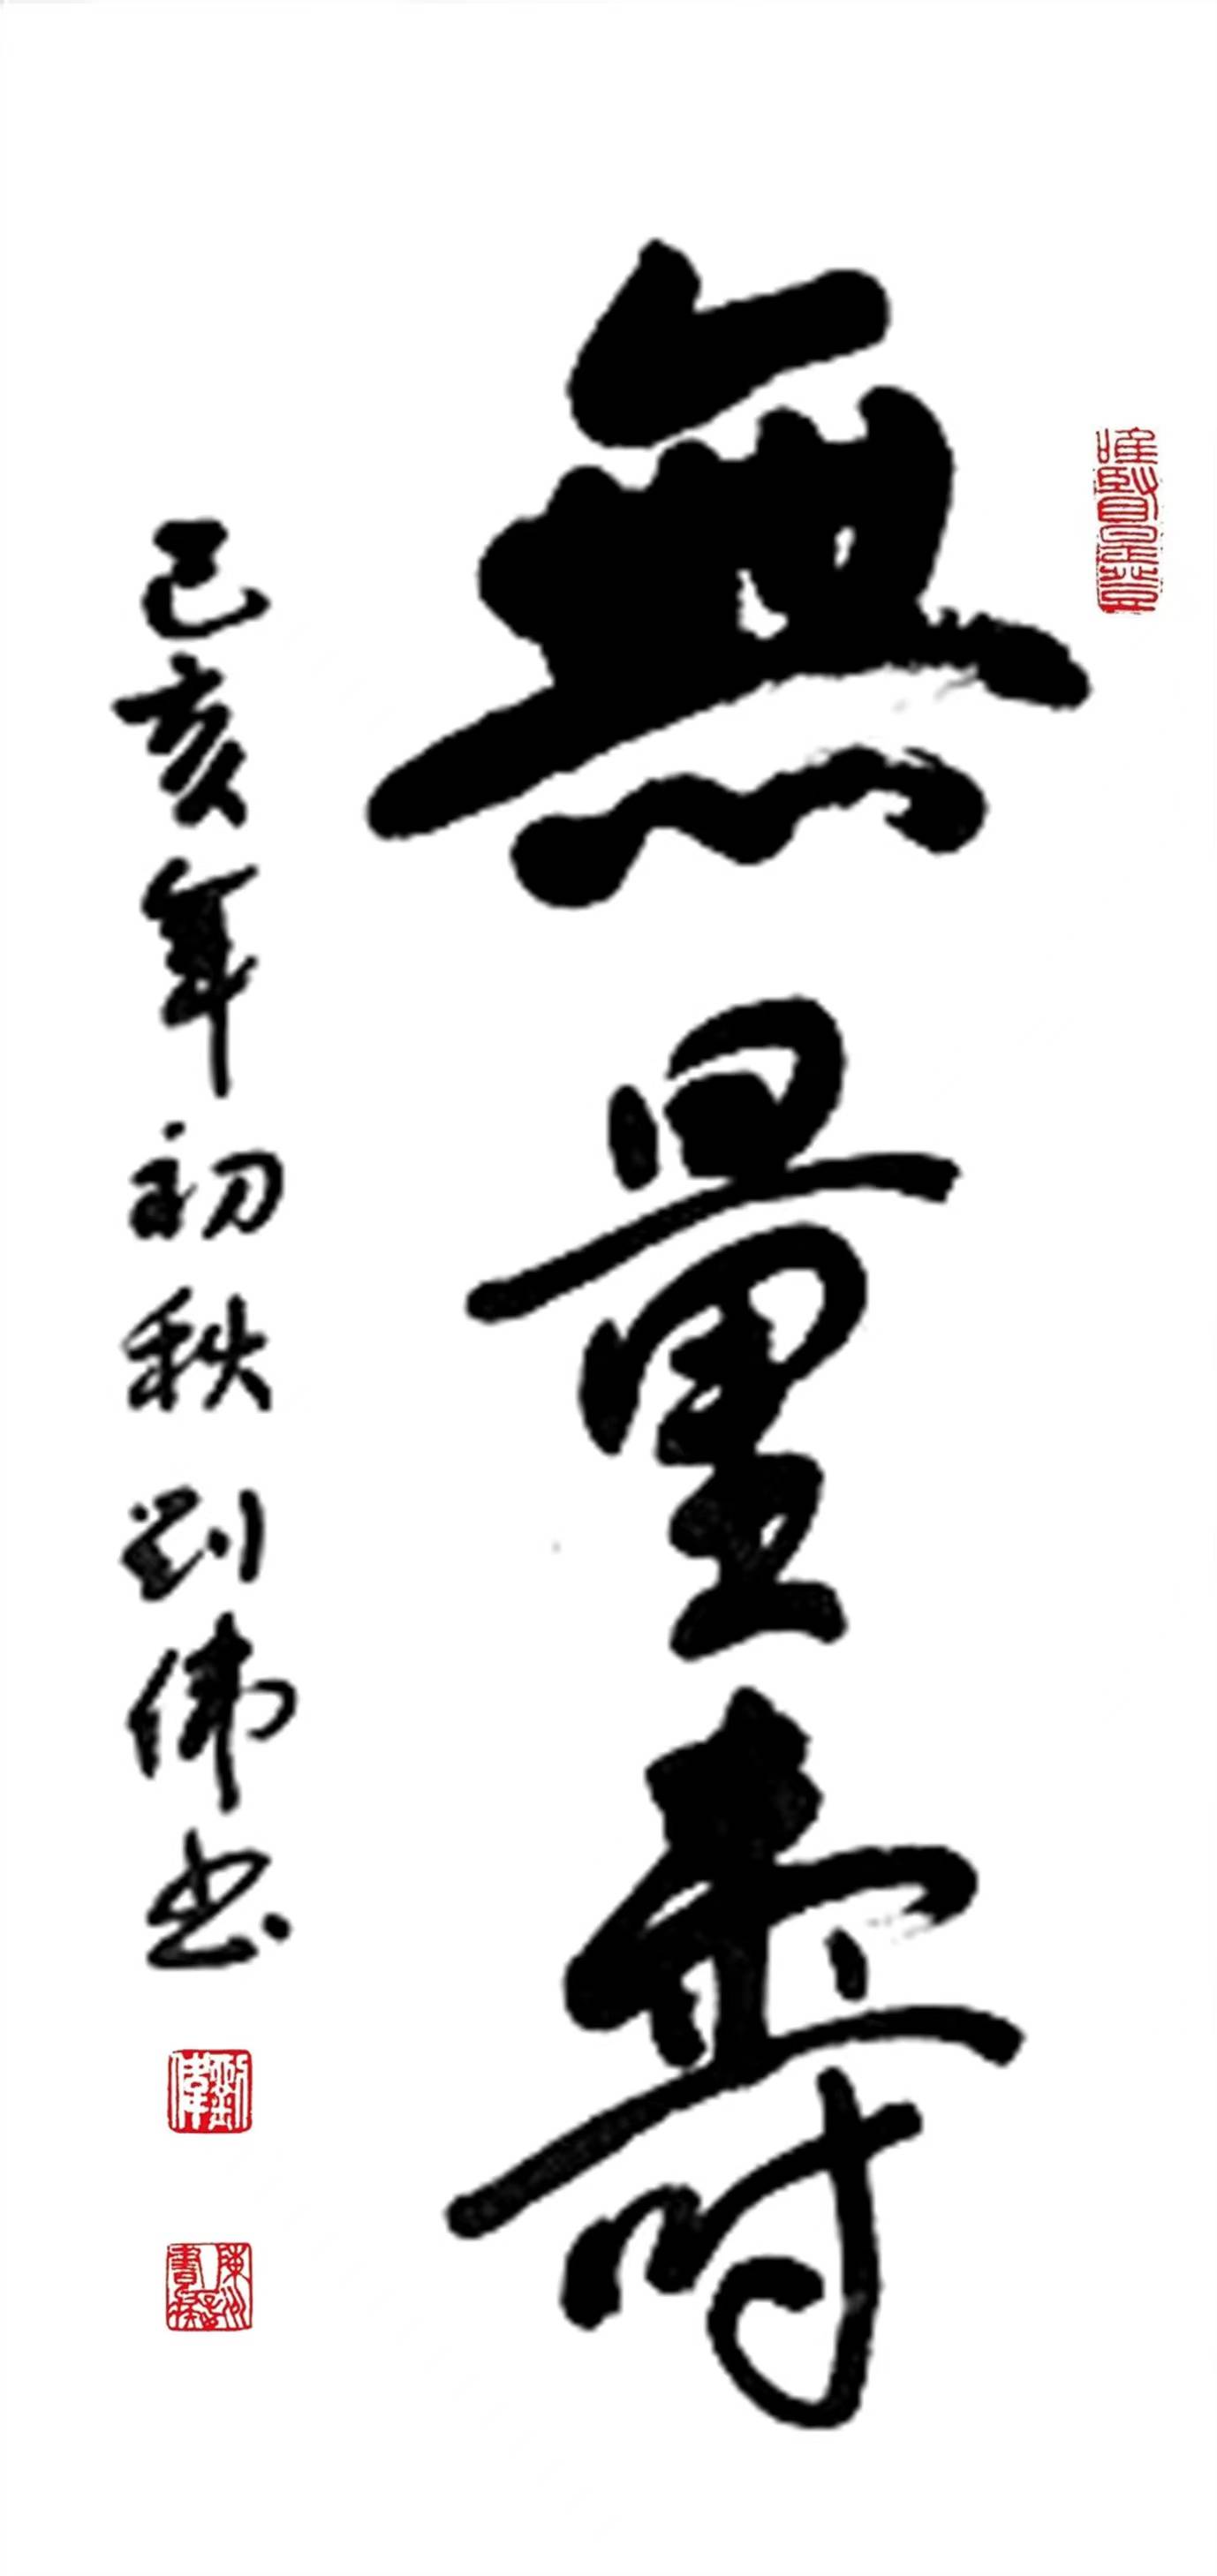 無量壽
己亥年初秋 劉偉书
劉偉